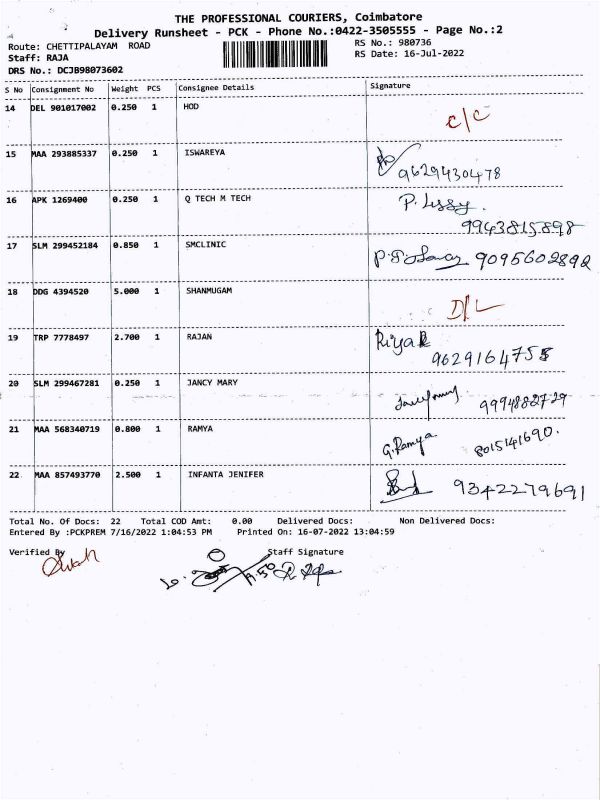 THE PROFESSIONAL COURIERS, Coimbatore
Delivery Runsheet - PCK - Phone No.:0422-3505555 - Page No.:2
Route: CHETTIPALAYAM ROAD RS No.: 980736
Staff: RAJA RS Date: 16-Jul-2022
DRS No.: DCJB98073602
S No Consignment No Weight PCS Consignee Details Signature
14 DEL 901017002 0.250 1 HOD C/C
15 MAA 293885337 0.250 1 ISWAREYA
9629430478
16 APK 1269400 0.250 1 Q TECH M TECH P. Lissy.
9943815898
17 SLM 299452184 0.850 1 SMCLINIC
9095602892
18 DDG 4394520 5.000 1 SHANMUGAM D/L
19 TRP 7778497 2.700 1 RAJAN Riya
9629164755
20 SLM 299467281 0.250 1 JANCY MARY
9994882729
21 MAA 568340719 0.800 1 RAMYA G. Ramya 8015141690.
22 MAA 857493770 2.500 1 INFANTA JENIFER
9342279691
Total No. Of Docs: 22 Total COD Amt: 0.00 Delivered Docs: Non Delivered Docs:
Entered By :PCKPREM 7/16/2022 1:04:53 PM Printed On: 16-07-2022 13:04:59
Verified By Staff Signature